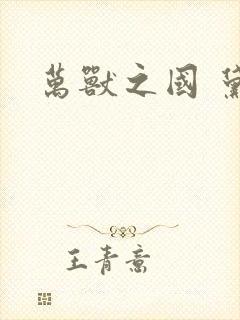 萬獸之國
王青意